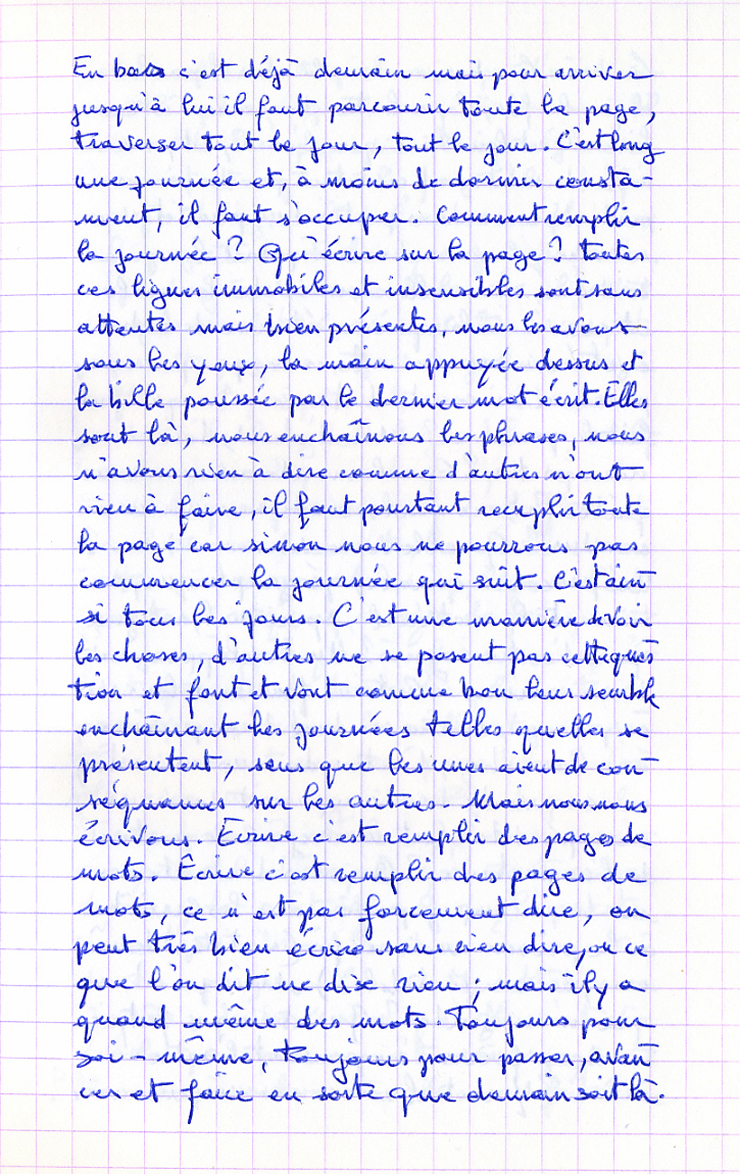 En bas c'est déjà demain mais pour arriver
jusqu'à lui il faut parcourir toute la page,
traverser tout le jour, tout le jour. C'est long
une journée et, à moins de dormir consta-
ment, il faut s'occuper. Comment remplir
la journée ? Qu'écrire sur la page ? toutes
ces lignes immobiles et insensibles sont sans
attentes mais bien présentes, nous les avons
sous les yeux, la main appuyée dessus et
la bille poussée par le dernier mot écrit. Elles
sont là, nous enchaînons les phrases, nous
n'avons rien à dire comme d'autres n'ont
rien à faire, il faut pourtant remplir toute
la page car sinon nous ne pourrons pas
commencer la journée qui suit. C'est ain-
si tous les jours. C'est une manière de voir
les choses, d'autres ne se posent pas cette ques-
tion et font et vont comme bon leur semble
enchaînant les journées telles quelles se
présentent, sans que les unes aient de con-
séquences sur les autres. Mais nous nous
écrivons. Écrire c'est remplir des pages de
mots. Écrire c'est remplir des pages de
mots, ce n'est pas forcement dire, on
peut très bien écrire sans rien dire, ou ce
que l'on dit ne dise rien ; mais il y a
quand même des mots. Toujours pour
soi-même, toujours pour passer, avan-
cer et faire en sorte que demain soit là.